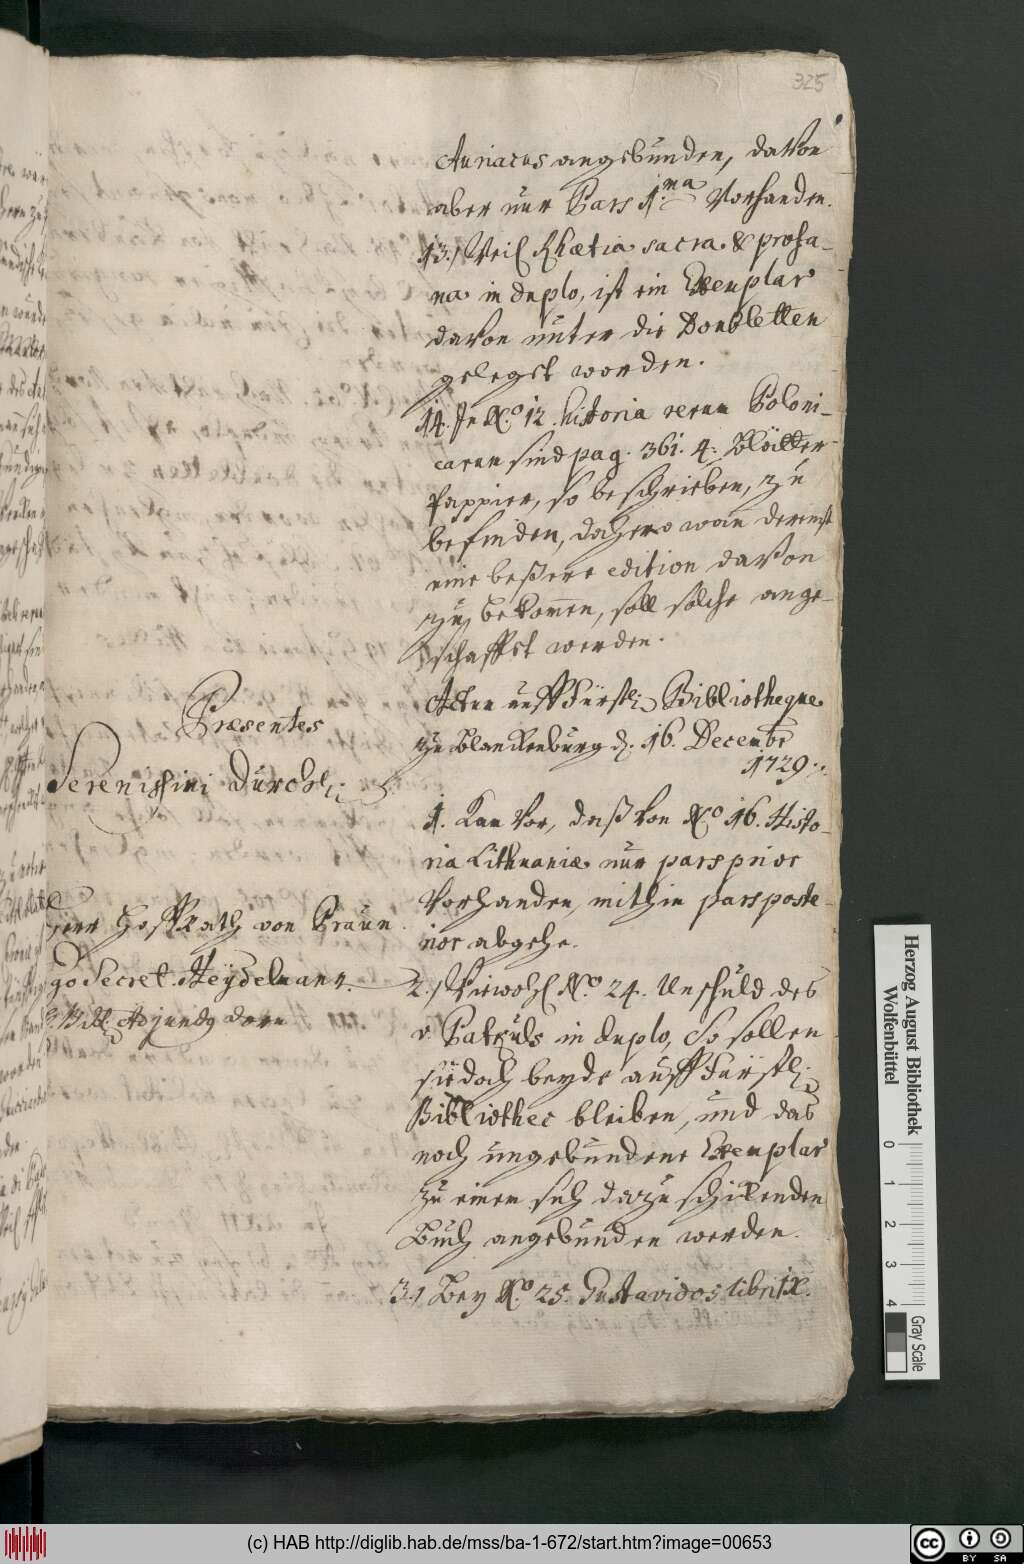 325
Auriacus angebunden, davon
aber nur Pars 1.ma Vorhanden.
13./ Weil Rhætia sacra & profa-
na in duplo, ist ein Exemplar
davon unter die Doubletten
gelegt worden.
14. In No. 12. historia rerum Poloni-
carum sind pag. 361. 4. Blätter
Pappier, so beschrieben, zu
befinden, dahero wan dereinst
eine beßere edition davon
zu bekommen, soll solche ange-
schafft werden.
Actum auff Fürstl. Bibliotheque
zu Blanckenburg d. 16. Decembr
1729.
Præsentes
Serenissimi Durchl.
Herr Hoffrath von Praun
Secret. Heydelmann.
Bibl. Adjunctg Dorn
1. Kam Vor, daß von No. 16. Histo-
ria Lithuaniæ nur pars prior
Vorhanden, mithin pars poste-
rior abgehe.
2./ Wiewohl No. 24. Unschuld des
v Patkuls in duplo, So sollen
sie doch beyde auff Fürstl.
Bibliothec bleiben, und das
noch ungebundene Exemplar
zu einem sich dazu schickenden
Buch angebunden werden.
3./ Bey No. 25. Gustavidos libri IX.
Herzog August Bibliothek
Wolfenbüttel
0 1 2 3 4
Gray Scale
(c) HAB http://diglib.hab.de/mss/ba-1-672/start.htm?image=00653
cc BY SA